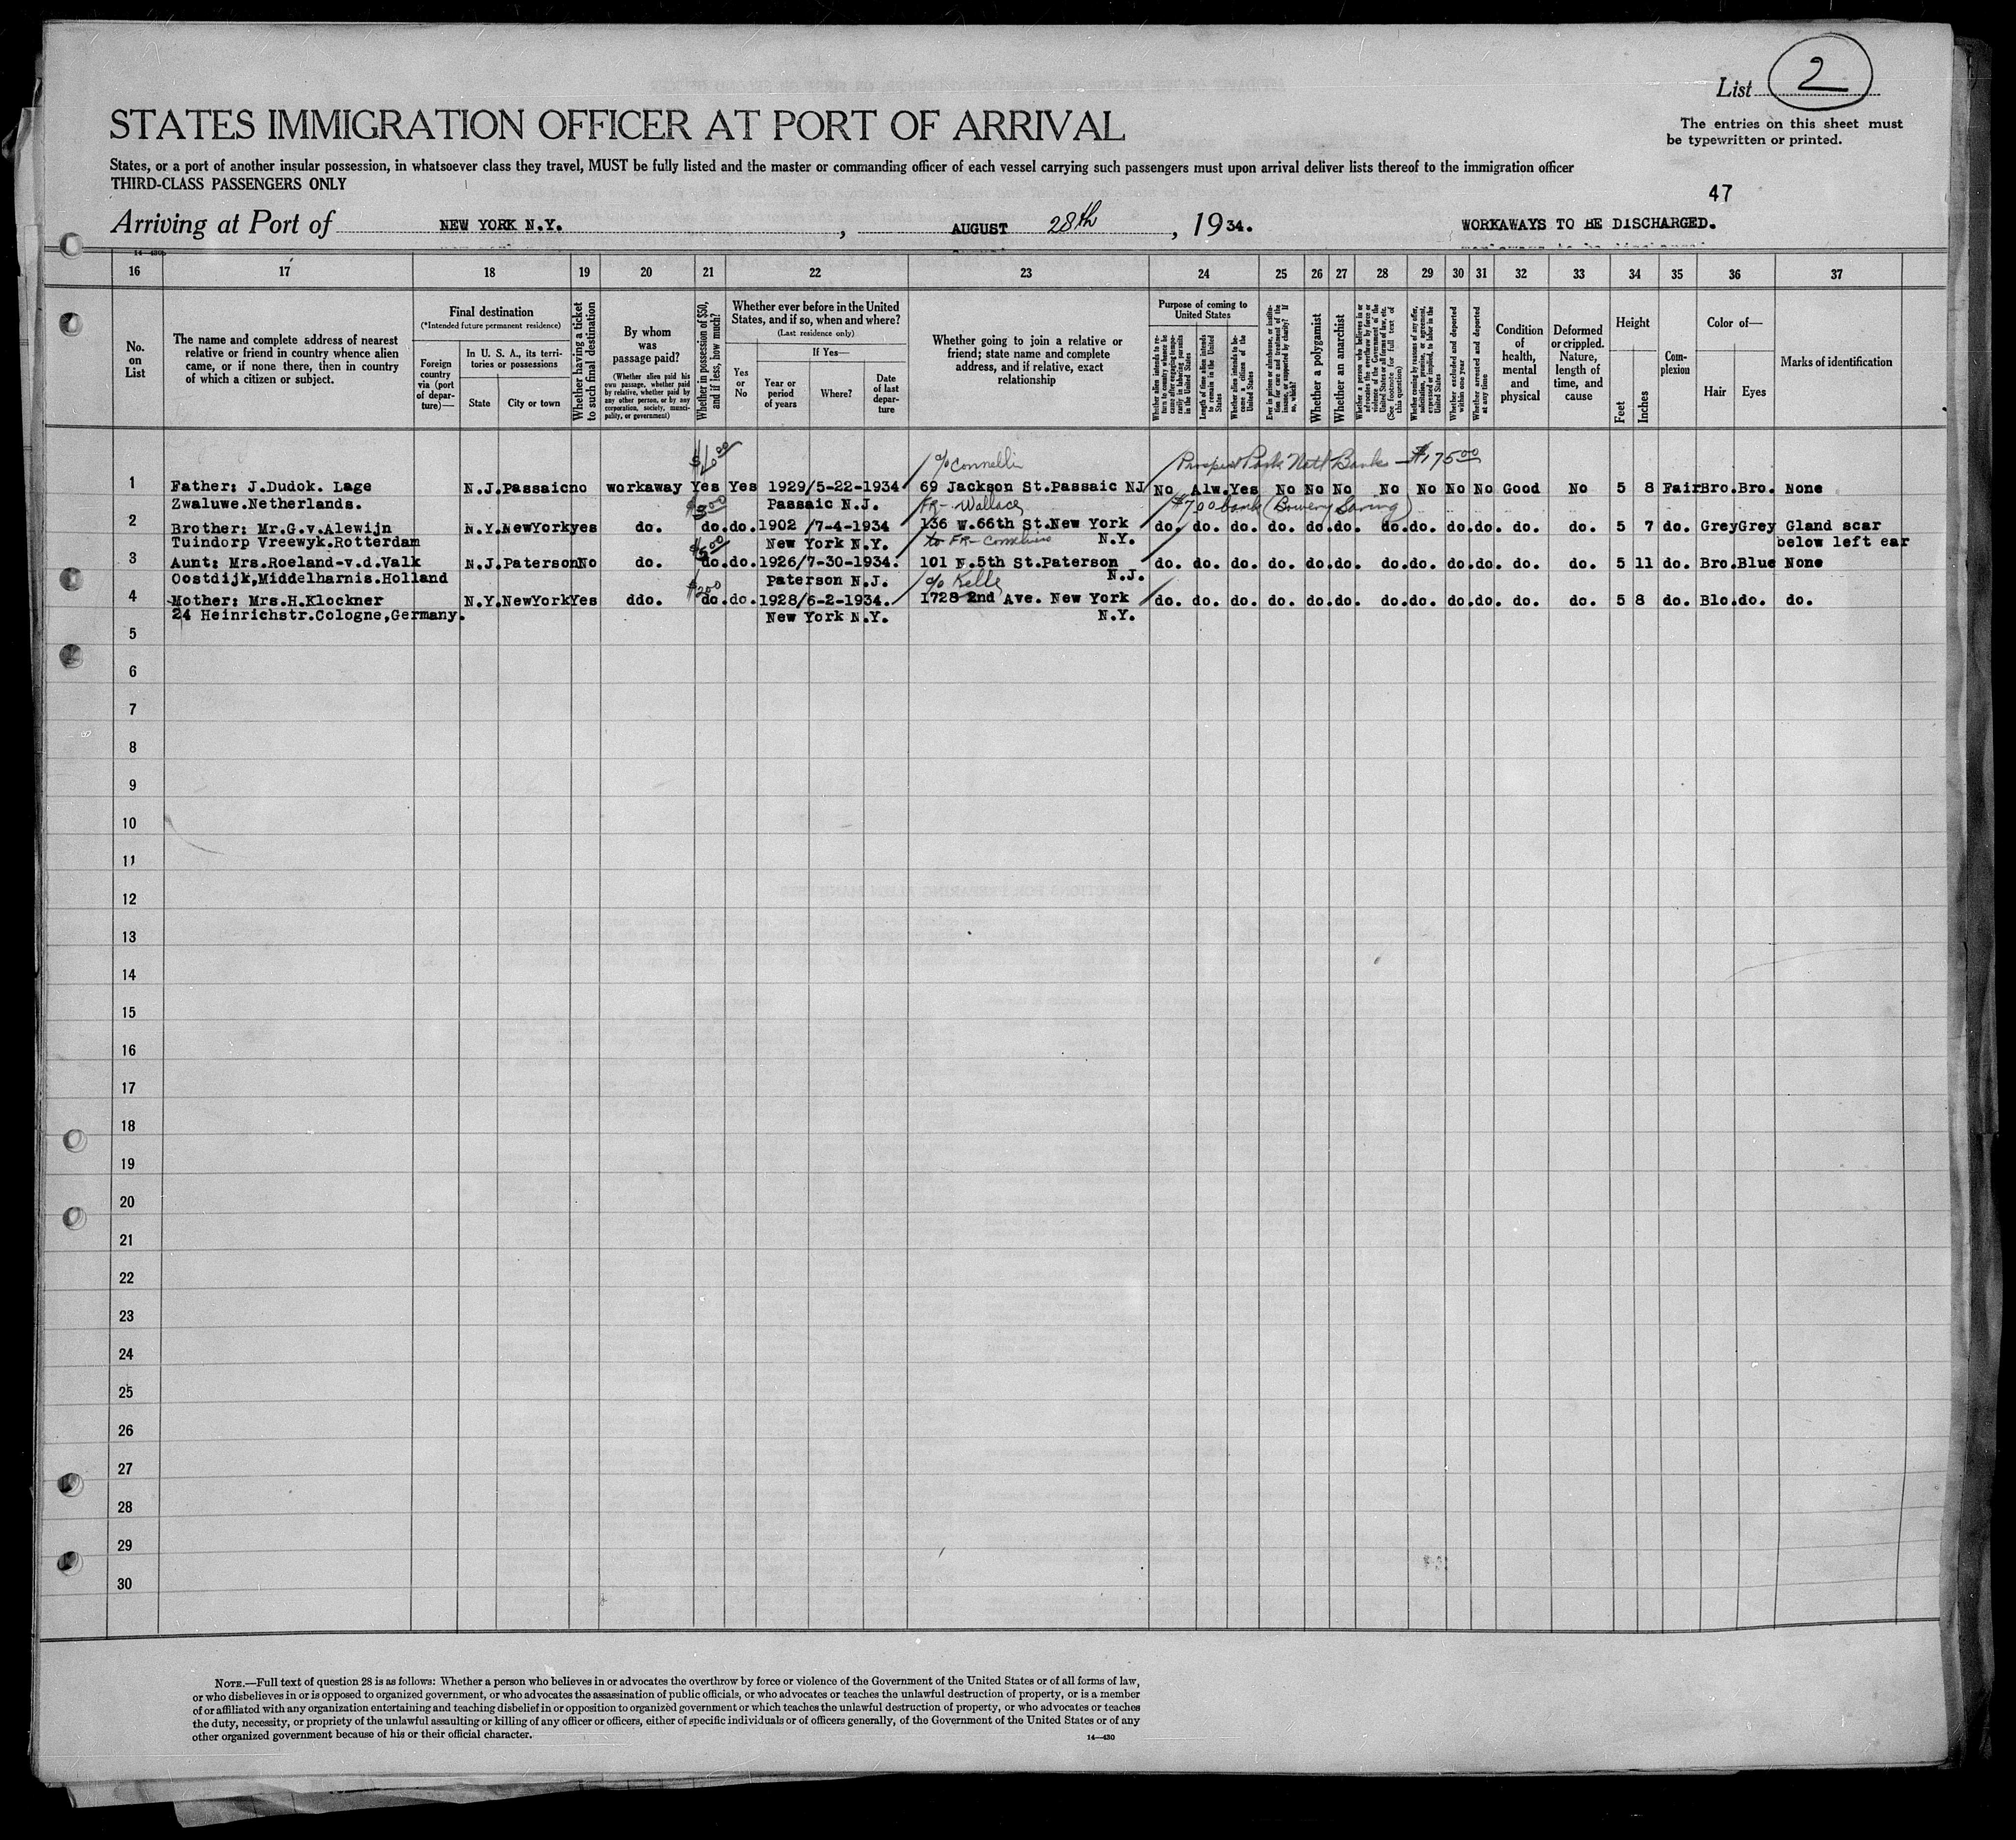 List 2
STATES IMMIGRATION OFFICER AT PORT OF ARRIVAL
The entries on this sheet must
be typewritten or printed.
States, or a port of another insular possession, in whatsoever class they travel, MUST be fully listed and the master or commanding officer of each vessel carrying such passengers must upon arrival deliver lists thereof to the immigration officer
THIRD-CLASS PASSENGERS ONLY
47
Arriving at Port of NEW YORK N.Y. , AUGUST 28th , 1934.
WORKAWAYS TO BE DISCHARGED.
14—430
16 17 18 19 20 21 22 23 24 25 26 27 28 29 30 31 32 33 34 35 36 37
No. on List
The name and complete address of nearest relative or friend in country whence alien came, or if none there, then in country of which a citizen or subject.
Final destination
(*Intended future permanent residence)
Foreign country via (port of departure)—
In U. S. A., its territories or possessions
State
City or town
Whether having a ticket to such final destination
By whom was passage paid?
(Whether alien paid his own passage, whether paid by relative, whether paid by any other person, or by any corporation, society, municipality, or government)
Whether in possession of $50, and if less, how much?
Whether ever before in the United States, and if so, when and where?
(Last residence only)
Yes or No
If Yes—
Year or period of years
Where?
Date of last departure
Whether going to join a relative or friend; state name and complete address, and if relative, exact relationship
Purpose of coming to United States
Whether alien intends to return to country whence he came after engaging temporarily in laboring pursuits in the United States
Length of time alien intends to remain in the United States
Whether alien intends to become a citizen of the United States
Ever in prison or almshouse, or institution for care and treatment of the insane, or supported by charity? If so, which?
Whether a polygamist
Whether an anarchist
Whether a person who believes in or advocates the overthrow by force or violence of the Government of the United States or all forms of law, etc. (See footnote for full text of this question)
Whether coming by reasons of any offer, solicitation, promise, or agreement, expressed or implied, to labor in the United States
Whether excluded and deported within one year
Whether arrested and deported at any time
Condition of health, mental and physical
Deformed or crippled. Nature, length of time, and cause
Height
Feet
Inches
Complexion
Color of—
Hair
Eyes
Marks of identification
c/o Prospect Park Natl Bank - $175.00
1 Father: J.Dudok. Lage N.J. Passaic no workaway Yes Yes 1929/5-22-1934 69 Jackson St.Passaic NJ No Alw. Yes No No No No No No No Good No 5 8 Fair Bro. Bro. None
Zwaluwe.Netherlands. Passaic N.J. FR- Wallace $700 bank (Bowery Saving)
2 Brother: Mr.G.v.Alewijn N.Y. NewYork yes do. do. do. 1902 /7-4-1934 136 W.66th St.New York do. do. do. do. do. do. do. do. do. do. do. do. 5 7 do. Grey Grey Gland scar
Tuindorp Vreewyk.Rotterdam $5.00 New York N.Y. to FR- N.Y. below left ear
3 Aunt: Mrs.Roeland-v.d.Valk N.J. Paterson No do. do. do. 1926/7-30-1934. 101 N.5th St.Paterson do. do. do. do. do. do. do. do. do. do. do. do. 5 11 do. Bro. Blue None
Oostdijk,Middelharnis.Holland Paterson N.J. c/o N.J.
4 Mother: Mrs.H.Klockner N.Y. NewYork Yes ddo. do. do. 1928/6-2-1934. 1728 2nd Ave. New York do. do. do. do. do. do. do. do. do. do. do. do. 5 8 do. Blo. do. do.
24 Heinrichstr.Cologne,Germany. New York N.Y. N.Y.
5
6
7
8
9
10
11
12
13
14
15
16
17
18
19
20
21
22
23
24
25
26
27
28
29
30
NOTE.—Full text of question 28 is as follows: Whether a person who believes in or advocates the overthrow by force or violence of the Government of the United States or of all forms of law,
or who disbelieves in or is opposed to organized government, or who advocates the assassination of public officials, or who advocates or teaches the unlawful destruction of property, or is a member
of or affiliated with any organization entertaining and teaching disbelief in or opposition to organized government or which teaches the unlawful destruction of property, or who advocates or teaches
the duty, necessity, or propriety of the unlawful assaulting or killing of any officer or officers, either of specific individuals or of officers generally, of the Government of the United States or of any
other organized government because of his or their official character.
14—430